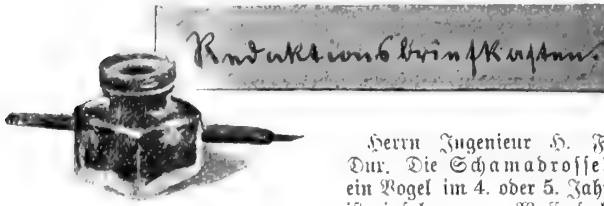 Redaktionsbriefkasten.
Herrn Ingenieur H. F
Dux. Die Schamadrosse
ein Vogel im 4. oder 5. Jah